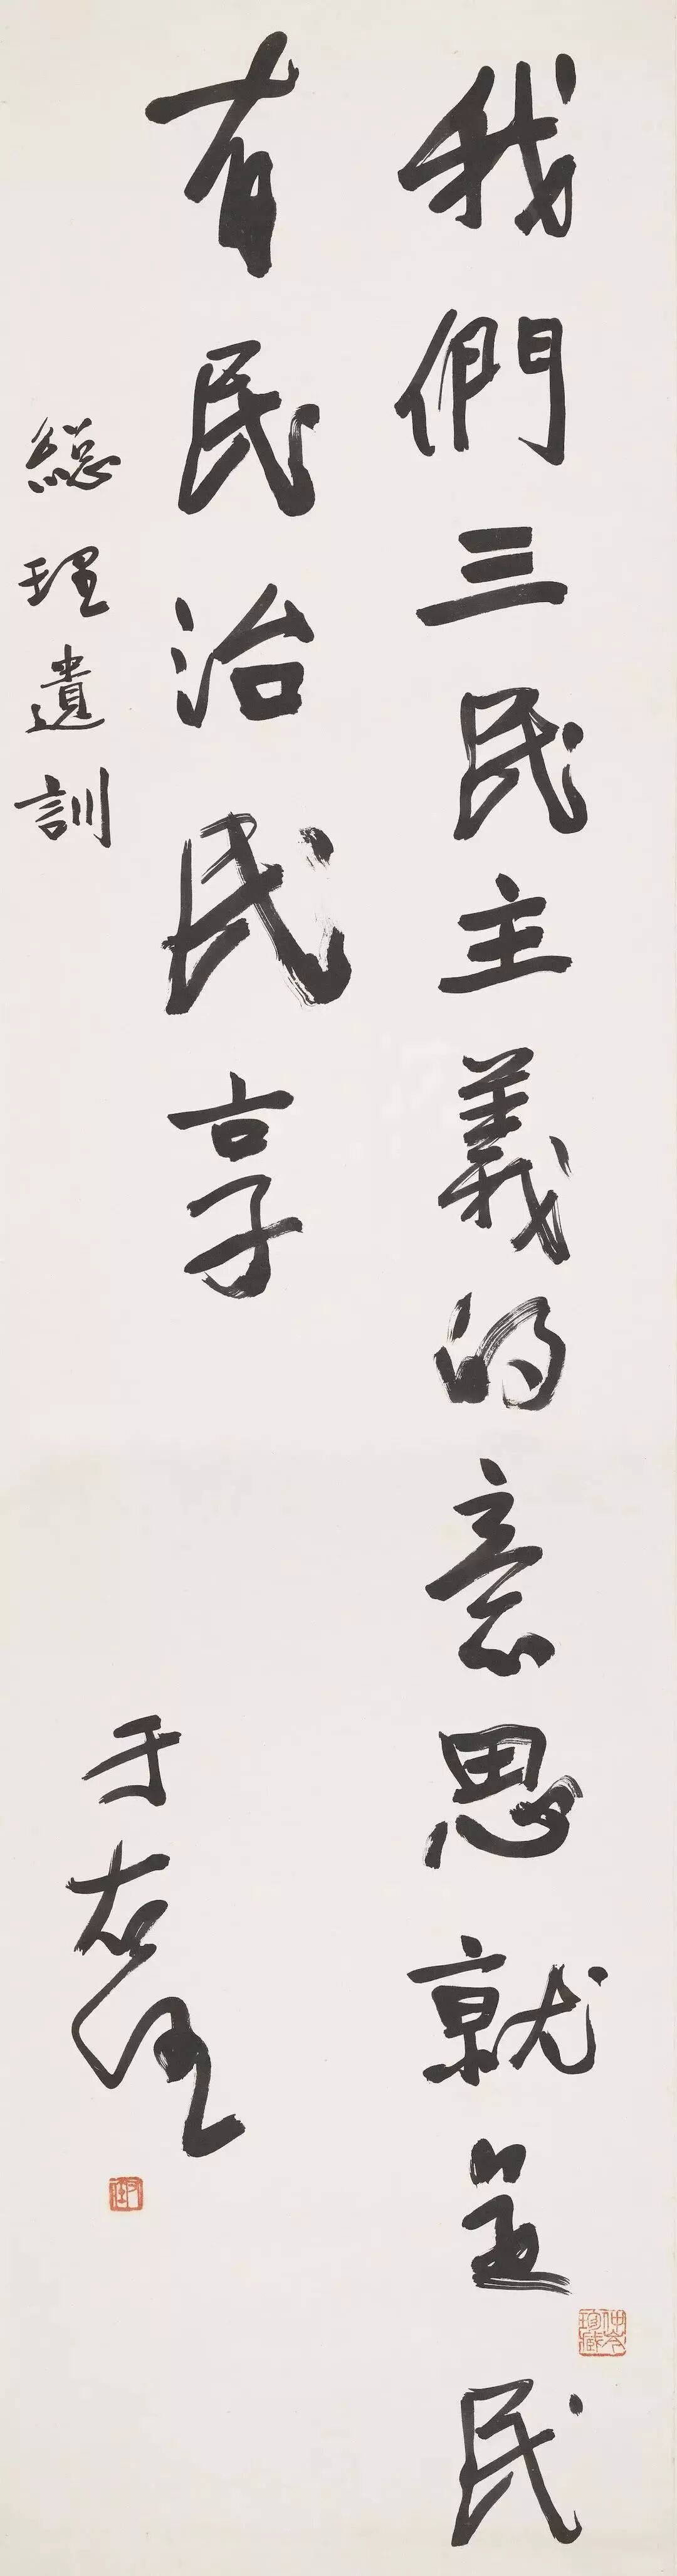 我們三民主義的意思就是民
有民治民享
總理遺訓
于右任
右任